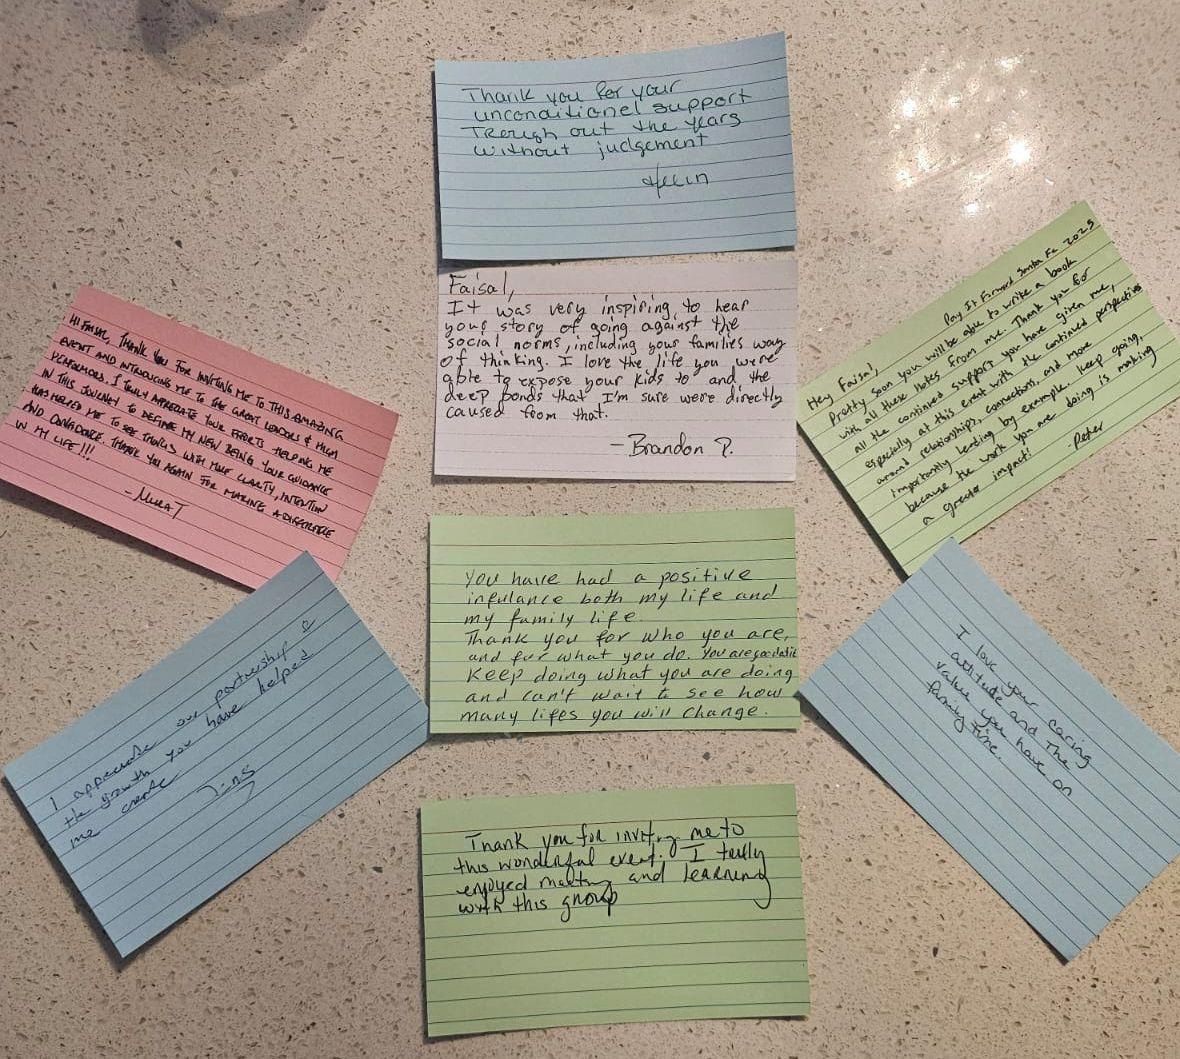 Thank you for your
unconditionel support
Treugh out the years
without judgement
Faisal,
It was very inspiring to hear
your story of going against the
social norms, including your families way
of thinking. I love the life you were
able to expose your kids to and the
deep bonds that I'm sure were directly
caused from that.
- Brandon P.
HI FAISAL, THANK YOU FOR INVITING ME TO THIS AMAZING
EVENT AND INTRODUCING ME TO THE GREAT LEADERS & HIGH
PERFORMERS. I TRULY APPRECIATE YOUR EFFORTS HELPING ME
IN THIS JOURNEY TO DEFINE MY NEW BEING. YOUR GUIDANCE
HAS HELPED ME TO SEE THINGS WITH MORE CLARITY, INTENTION
AND CONFIDENCE. THANK YOU AGAIN FOR MAKING A DIFFERENCE
IN MY LIFE!!!
- MURAT
Pay It Forward Santa Fe 2025
Hey Faisal,
Pretty soon you will be able to write a book
with all these notes from me. Thank you for
all the continued support you have given me,
especially at this event with the continued perspectives
around relationships, connections, and more
importantly leading by example. Keep going,
because the work you are doing is making
a greater impact!
Peter
You have had a positive
infulance both my life and
my family life.
Thank you for who you are,
and fur what you do. You are
Keep doing what you are doing
and can't wait to see how
many lifes you will change.
I appreciate our partnership &
the growth you have helped
me create
I love your caring
attitude and the
value you have on
family time.
Thank you for inviting me to
this wonderful event. I truly
enjoyed meeting and learning
with this group